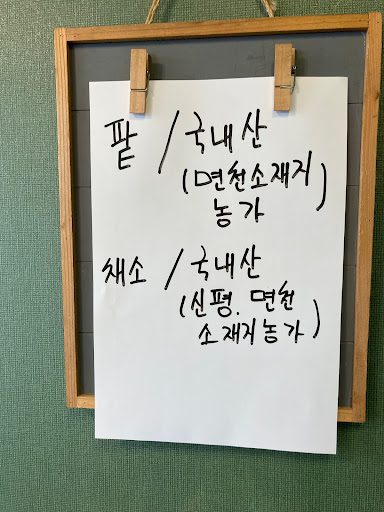 팥 / 국내산
(면천소재지)
농가
채소 / 국내산
(신평. 면천
소재지농가)